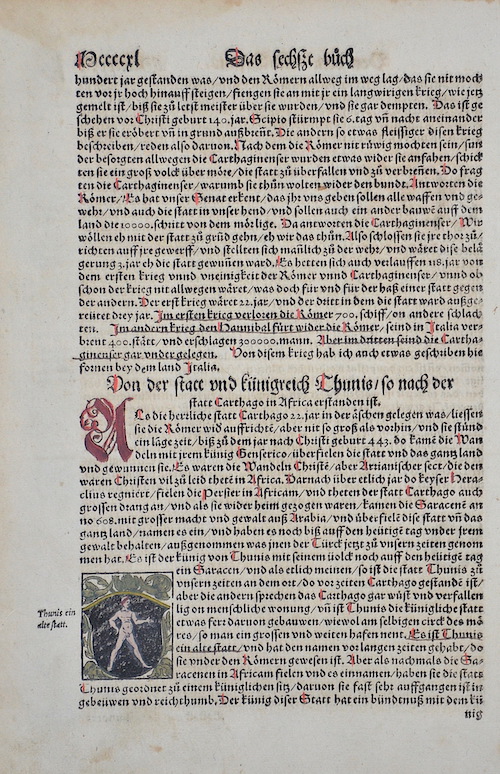 Mccccxl Das sechszte bůch
hundert jar gestanden was/ vnd den Römern allweg im weg lag/ das sie nit moch
ten vor jr hoch hinauff steigen/ fiengen sie an mit jr ein langwirigen krieg/ wie jetz
gemelt ist/ biß sie zů letst meister über sie wurden/ vnd sie gar dempten. Das ist ge
schehen vor Christi geburt 140. jar. Scipio stürmpt sie 6. tag vñ nacht aneinander
biß er sie eröbert vñ in grund außbrent. Die andern so etwas fleissiger disen krieg
beschreiben/ reden also daruon. Nach dem die Römer nit růwig mochten sein/ sun
der besorgten allwegen die Carthaginenser wurden etwas wider sie anfahen/ schick
ten sie ein groß volck über möre/ die statt zů überfallen vnd zů verbrenen. Do frag
ten die Carthaginenser/ warumb sie thůn wolten wider den bundt. Antworten die
Römer/ Es hat vnser Senat erkent/ das jhr vns geben sollen alle waffen vnd ge-
wehr/ vnd auch die statt in vnser hend/ vnd sollen auch ein ander bauwē auff dem
land die 10000. schritt von dem mör lige. Da antworten die Carthaginenser/ Wir
wöllen eh mit der statt zů grūd gehn/ eh wir das thůn. Also schlossen sie jre thor zů/
richten auff jre gewerff/ vnd stelleten sich mañlich zů der wehr/ vnd wäret dise belä
gerung 3. jar eh die statt gewuñen ward. Es hetten sich auch verlauffen 118. jar von
dem ersten krieg vnnd vneinigkeit der Römer vnnd Carthaginenser/ vnnd ob
schon der krieg nit allwegen wäret/ was doch für vnd für der haß einer statt gegen
der andern. Der erst krieg wäret 22. jar/ vnd der dritt in dem die statt ward außge-
reütet drey jar. Im ersten krieg verloren die Römer 700. schiff/ on andere schlach
ten. Im andern krieg den Hannibal fürt wider die Römer/ seind in Italia ver-
brent 400. stått/ vnd erschlagen 300000. mann. Aber im dritten seind die Cartha-
ginenser gar vnder gelegen. Von disem krieg hab ich auch etwas geschriben hie
fornen bey dem land Italia.
Von der statt vnd künigreich Thunis/ so nach der
statt Carthago in Africa erstanden ist.
Als die herrliche statt Carthago 22. jar in der äschen gelegen was/ liessen
sie die Römer wid auffrichtē/ aber nit so groß als vorhin/ vnd sie stůnd
ein läge zeit/ biß zů dem jar nach Christi geburt 443. do kamē die Wan
deln mit jrem künig Genserico/ überfielen die statt vnd das gantz land
vnd gewunnen sie. Es waren die Wandeln Christē/ aber Arrianischer sect/ die den
waren Christen vil zů leid thetē in Africa. Darnach über etlich jar do keyser Hera-
clius regniert/ fielen die Persier in Africam/ vnd theten der statt Carthago auch
grossen drang an/ vnd als sie wider heim gezogen waren/ kamen die Saracenē an
no 608. mit grosser macht vnd gewalt auß Arabia/ vnd überfielē dise statt vñ das
gantz land/ namen es ein/ vnd haben es noch biß auff den heütigē tag vnder jrem
gewalt behalten/ außgenommen was jnen der Türck jetzt zů vnsern zeiten genom
men hat. Es ist der künig von Thunis mit seinem völck noch auff den heütigē tag
ein Saracen/ vnd als etlich meinen/ so ist die statt Thunis zů
vnsern zeiten an dem ort/ do vor zeiten Carthago gestandē ist/
aber die andern sprechen das Carthago gar wůst vnd verfallen
lig on menschliche wonung/ vñ ist Thunis die künigliche statt
etwas ferr daruon gebauwen/ wiewol am selbigen circk des mö
res/ so man ein grossen vnd weiten hafen nent. Es ist Thunis
ein alte statt/ vnd hat den namen vor langen zeiten gehabt/ do
sie vnder den Römern gewesen ist. Aber als nachmals die Sa-
racenen in Africam fielen vnd es einnamen/ haben sie die statt
Thunis geordnet zů einem küniglichen sitz/ daruon sie fast sehr auffgangen ist in
gebeüwen vnd reichthumb. Der künig diser Statt hat ein bündtnuß mit dem kü
nig
Thunis ein
alte statt.